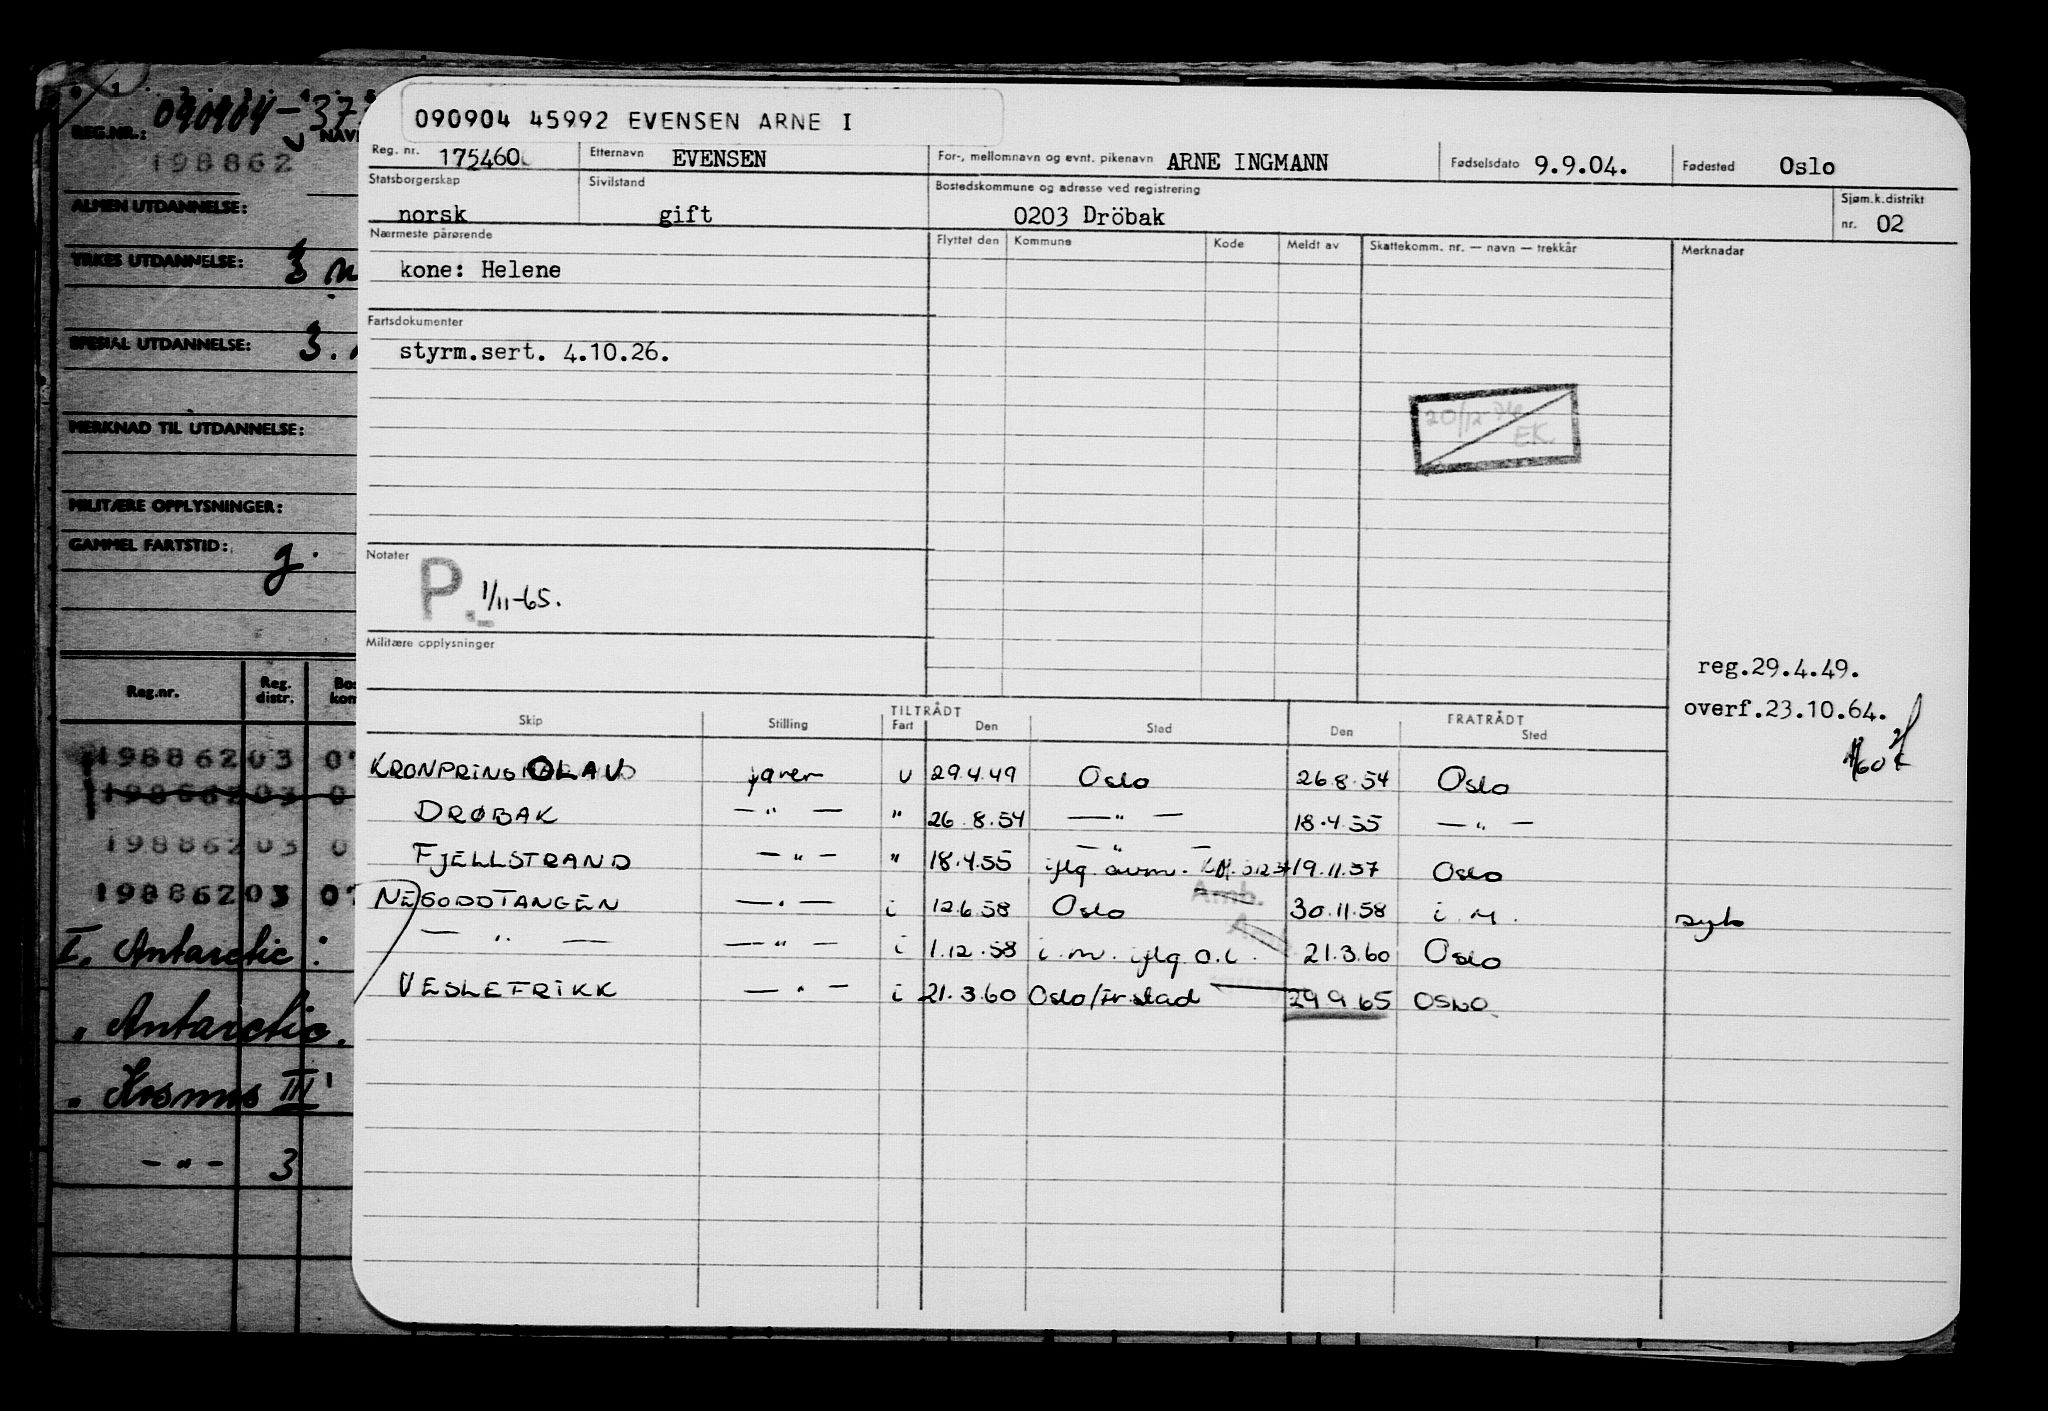 090904-37
REG.NR.:
198862
ALMEN UTDANNELSE:
YRKES UTDANNELSE: 3
SPESIAL UTDANNELSE: 3.
MERKNAD TIL UTDANNELSE:
MILITÆRE OPPLYSNINGER:
GAMMEL FARTSTID: g.
Reg.nr. Reg. distr.
198862 03 0
198862 03 0
198862 03 0
198862 03 0
I. Antarctic :
" Antarctic.
" Kosmos III
— " — 3
090904 45992 EVENSEN ARNE I
Reg. nr. 175460 Etternavn EVENSEN For-, mellomnavn og evnt. pikenavn ARNE INGMANN Fødselsdato 9.9.04. Fødested Oslo
Statsborgerskap Sivilstand Bostedskommune og adresse ved registrering Sjøm.k.distrikt
norsk gift 0203 Dröbak nr. 02
Nærmeste pårørende Flyttet den Kommune Kode Meldt av Skattekomm. nr. — navn — trekkår Merknadar
kone: Helene
Fartsdokumenter
styrm.sert. 4.10.26.
20/12 EK.
Notater
P. 1/11-65.
Militære opplysninger
reg.29.4.49.
overf.23.10.64.
TILTRÅDT FRATRÅDT
Skip Stilling Fart Den Sted Den Sted
KRONPRINS OLAV u 29.4.49 Oslo 26.8.54 Oslo
DRØBAK — " — " 26.8.54 — " — 18.4.55 — " —
FJELLSTRAND — " — " 18.4.55 iflg 19.11.57 Oslo
NESODDTANGEN — " — i 12.6.58 Oslo Amb. 30.11.58 i.m. syk
— " — — " — i 1.12.58 i.m. iflg o.l. 21.3.60 Oslo
VESLEFRIKK — " — i 21.3.60 Oslo 29.9.65 OSLO